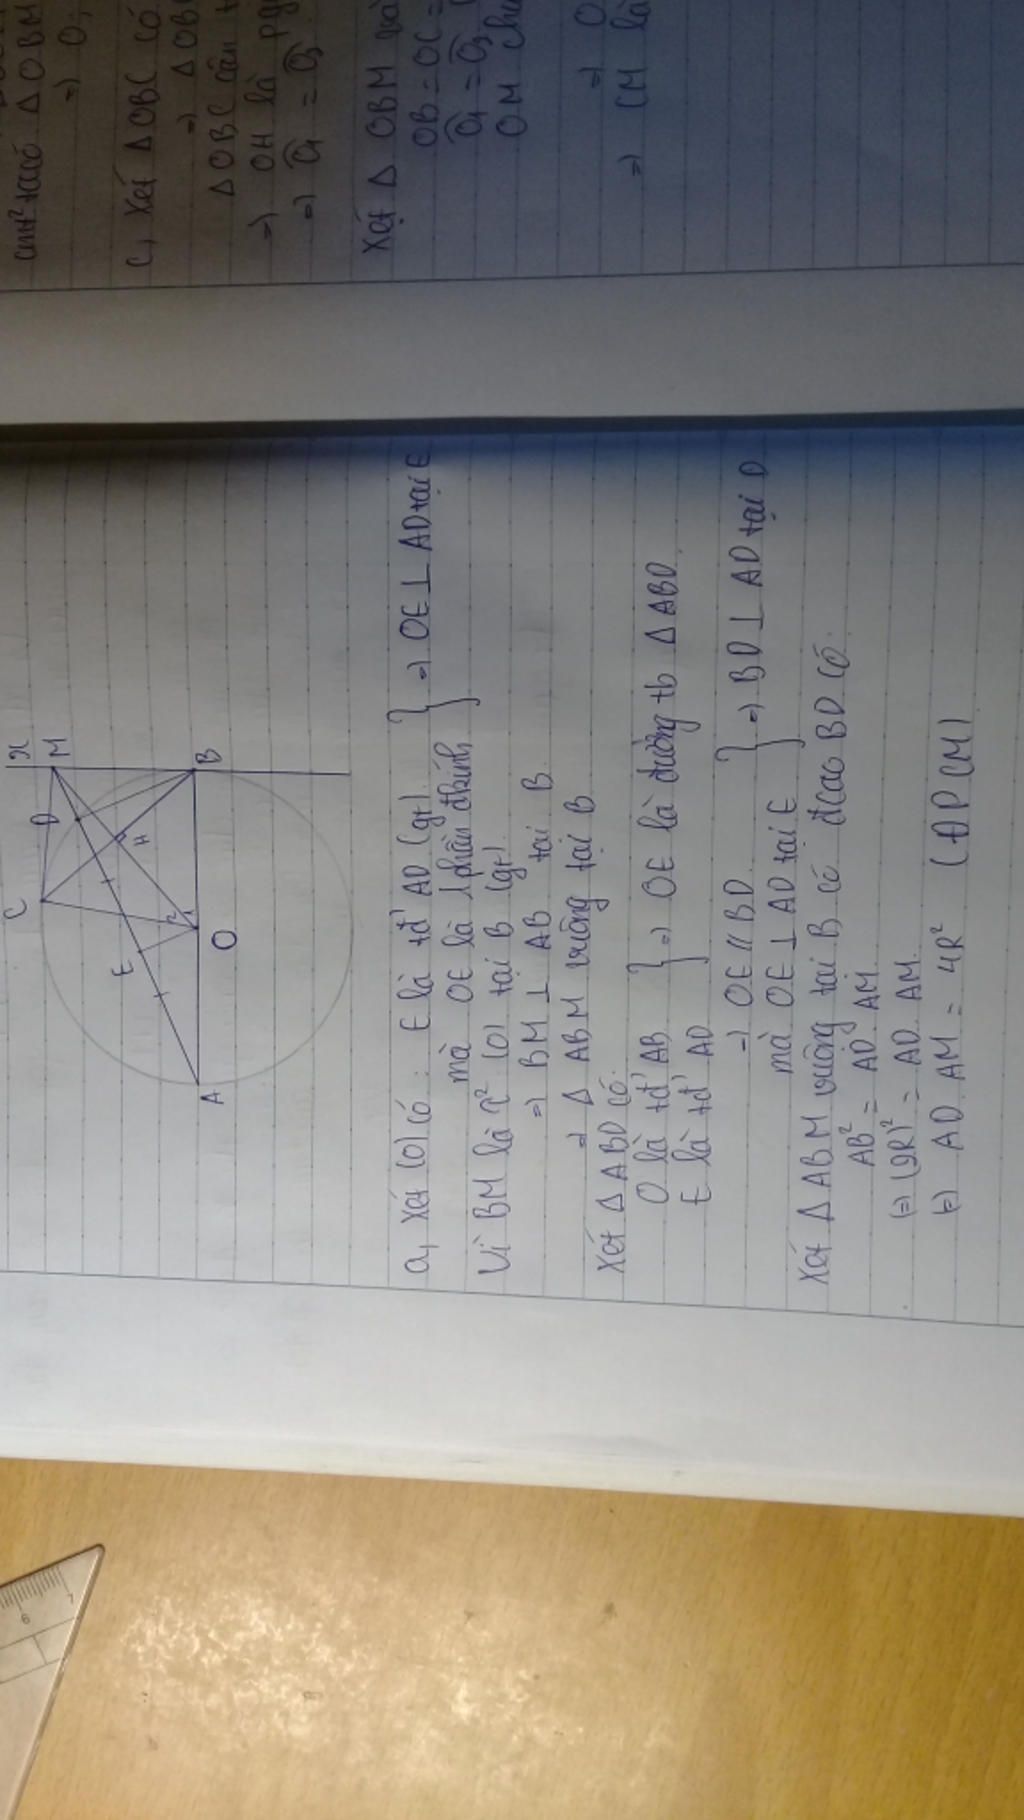 x
C
D
M
E
H
A
O
B
a, Xét (O) có: E là tđ' AD (gt)
mà OE là 1 phần đkính
=> OE ⊥ AD tại E
Vì BM là t² (O) tại B (gt)
=> BM ⊥ AB tại B
=> Δ ABM vuông tại B
Xét Δ ABD có:
O là tđ' AB
E là tđ' AD
=> OE là đường tb Δ ABD
=> OE // BD
mà OE ⊥ AD tại E
=> BD ⊥ AD tại D
Xét Δ ABM vuông tại B có đcao BD có:
AB² = AD. AM
(=) (2R)² = AD. AM.
(=) AD. AM = 4R² (ĐPCM)
có Δ OBM
=> O
C, Xét Δ OBC có
=> Δ OB
Δ OBC cân t
=> OH là pg
=> O1 = O2
Xét Δ OBM và
OB = OC =
O1 = O2
OM chu
=> O
=> CM là
9